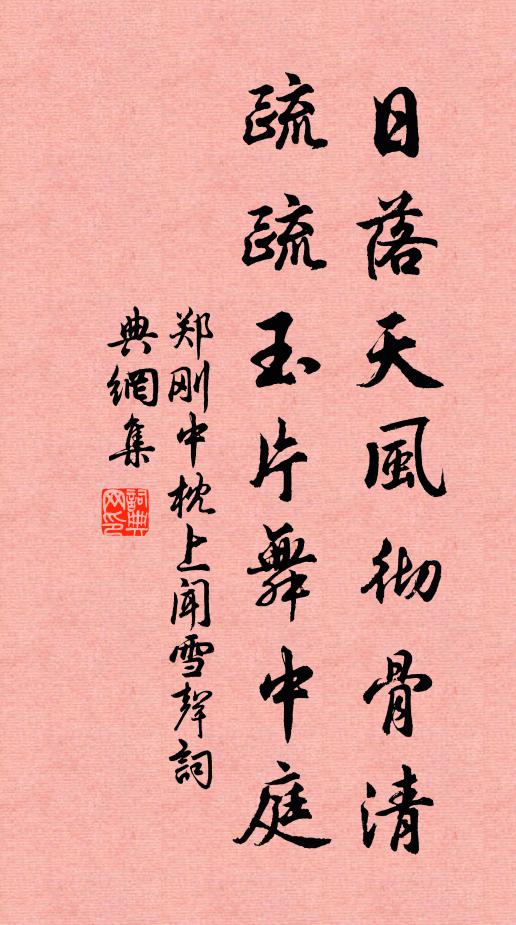 日落天風彻骨清
疏疏玉片舞中庭
郑刚中枕上闻雪聲詞
典網集
詞典网印